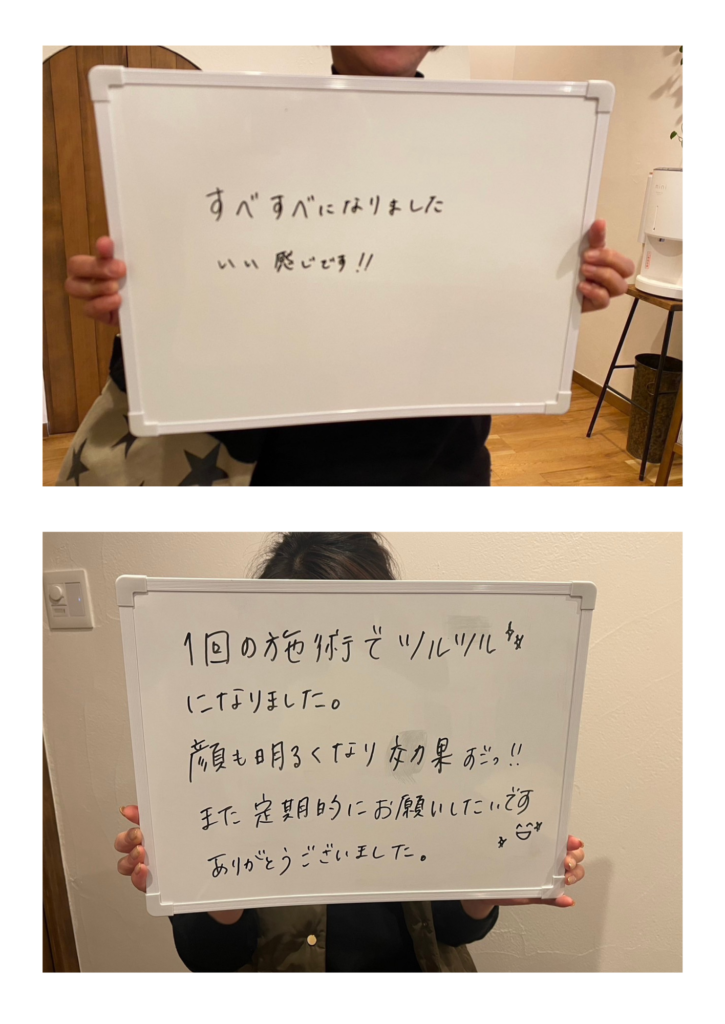 すべすべになりました
いい感じです!!
1回の施術でツルツル
になりました。
顔も明るくなり効果すごっ!!
また定期的にお願いしたいです
ありがとうございました。